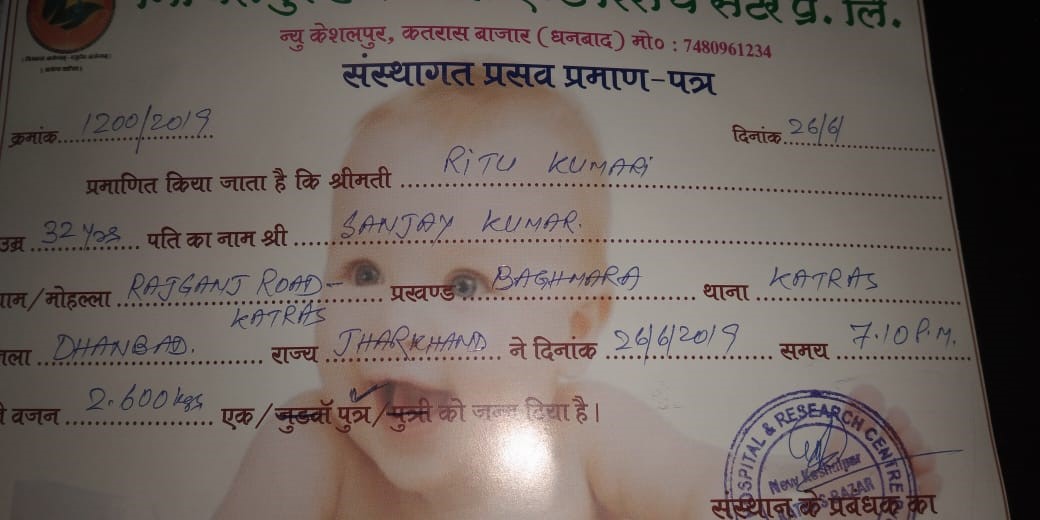 सेंटर प्रा. लि.
न्यु केशलपुर, कतरास बाजार (धनबाद) मो० : 7480961234
संस्थागत प्रसव प्रमाण-पत्र
क्रमांक 1200/2019 दिनांक 26/6/
प्रमाणित किया जाता है कि श्रीमती RITU KUMARI
उम्र 32 yrs पति का नाम श्री SANJAY KUMAR.
ग्राम/मोहल्ला RAJGANJ ROAD- प्रखण्ड BAGHMARA थाना KATRAS
KATRAS
जिला DHANBAD. राज्य JHARKHAND ने दिनांक 26/6/2019 समय 7.10 P.M.
वजन 2.600 kgs एक/जुडवाँ पुत्र/पुत्री को जन्म दिया है।
HOSPITAL & RESEARCH CENTRE
New Keshalpur
KATRAS BAZAR
संस्थान के प्रबंधक का